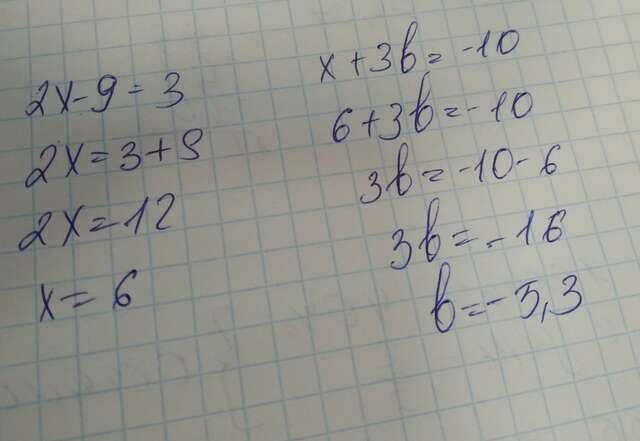 2x-9=3
2x=3+9
2x=12
x=6
x+3b=-10
6+3b=-10
3b=-10-6
3b=-16
b=-5,3